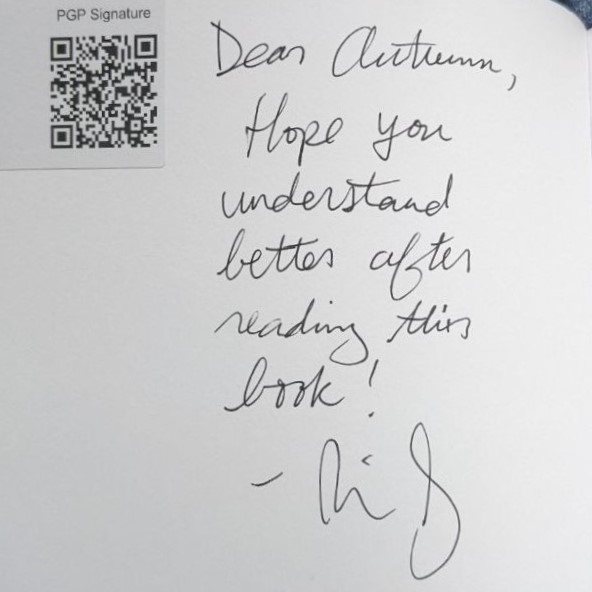 PGP Signature
Dear Autumn,
Hope you
understand
better after
reading this
book!